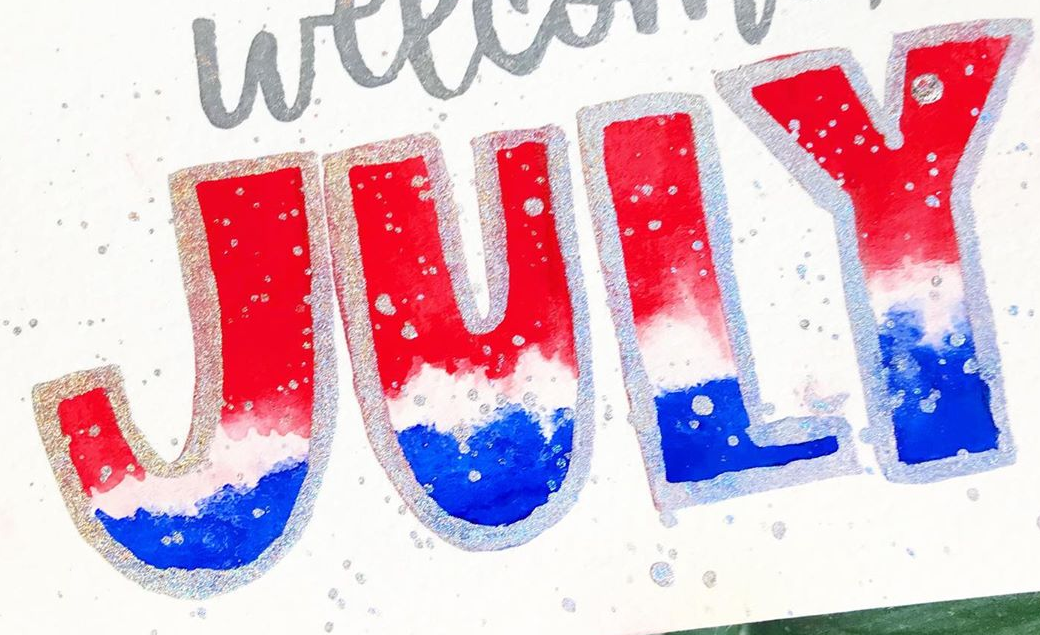 welcom
JULY